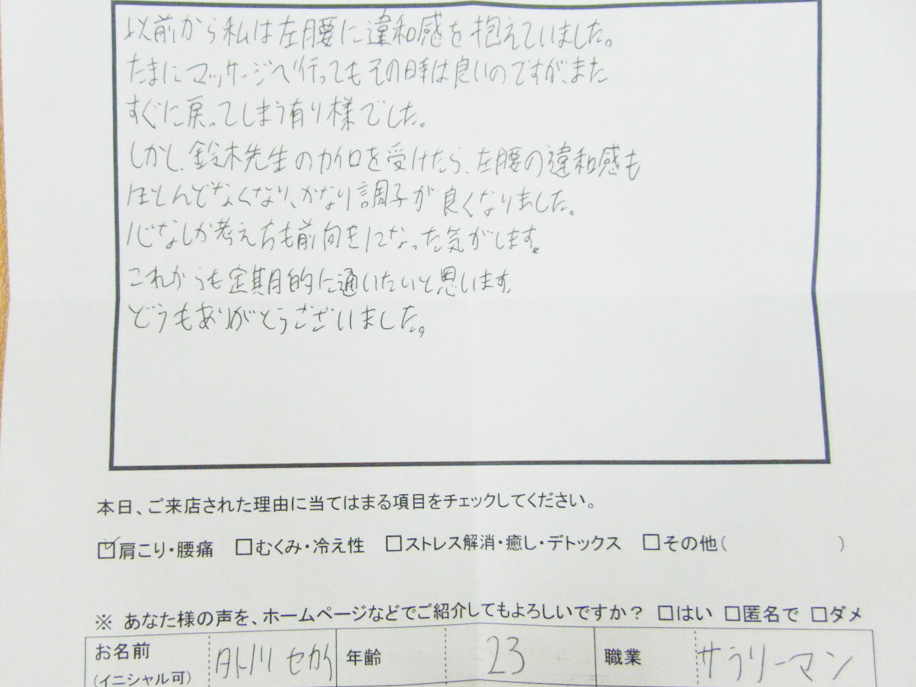 以前から私は左腰に違和感を抱えていました。
たまにマッサージへ行ってもその時は良いのですが、また
すぐに戻ってしまう有り様でした。
しかし、鈴木先生のカイロを受けたら、左腰の違和感も
ほとんどなくなり、かなり調子が良くなりました。
心なしか考え方も前向きになった気がします。
これからも定期的に通いたいと思います。
どうもありがとうございました。
本日、ご来店された理由に当てはまる項目をチェックしてください。
☑肩こり・腰痛 □むくみ・冷え性 □ストレス解消・癒し・デトックス □その他( )
※ あなた様の声を、ホームページなどでご紹介してもよろしいですか？ □はい □匿名で □ダメ
お名前 セカイ 年齢 23 職業 サラリーマン
(イニシャル可)